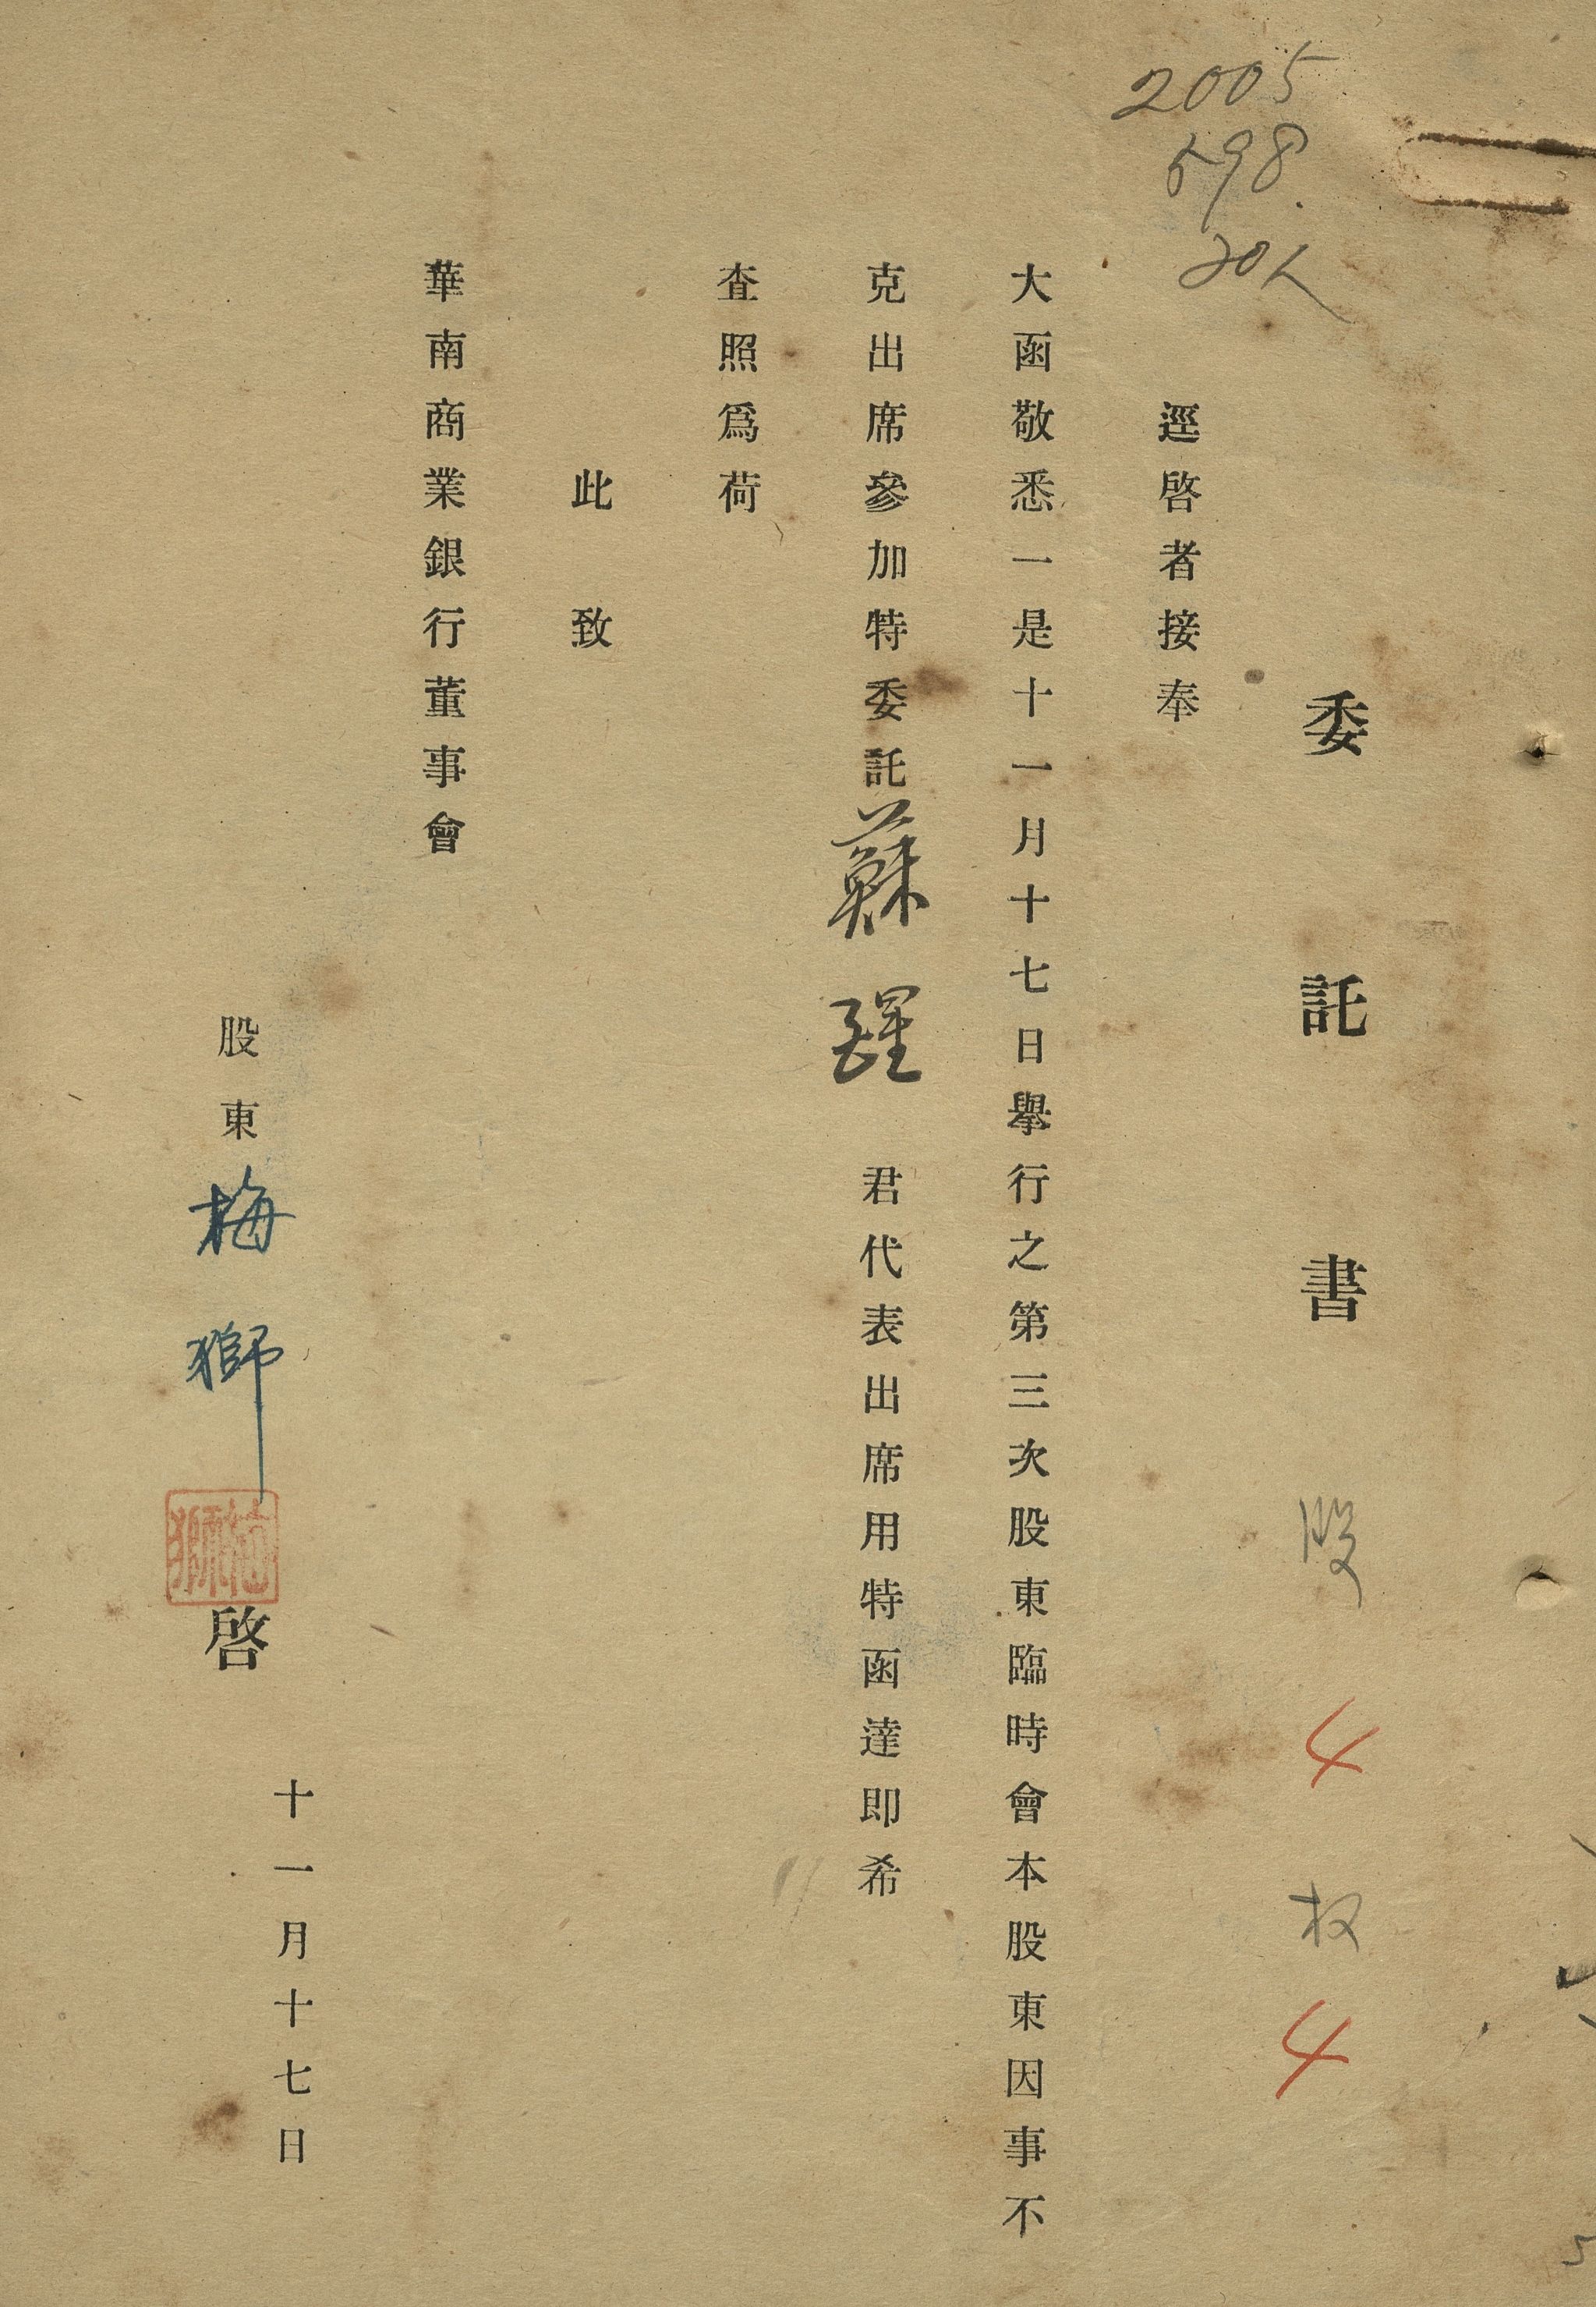 委託書 股 4 权 4
2005
598.
逕啓者接奉
大函敬悉一是十一月十七日舉行之第三次股東臨時會本股東因事不
克出席參加特委託蘇 君代表出席用特函達即希
査照爲荷
此致
華南商業銀行董事會
股東梅獅 啓
梅獅
十一月十七日